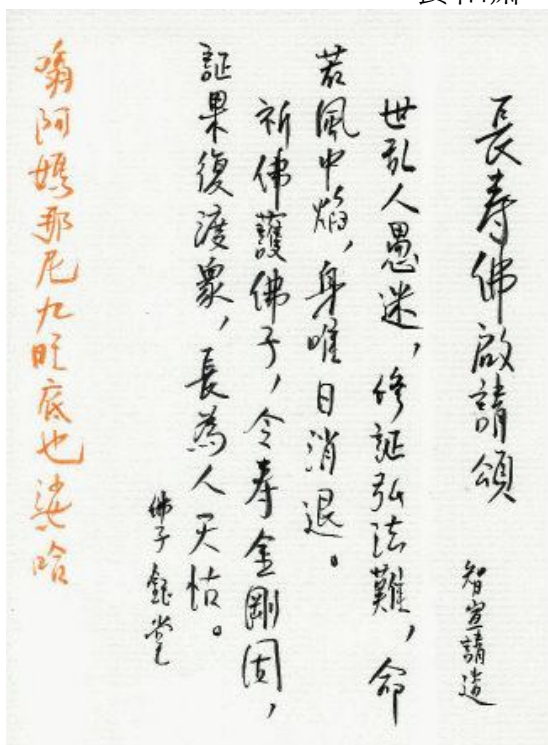 長寿佛啟請頌
智宣請造
世乱人愚迷，修証弘法難，命
若風中焰，身唯日消退。
祈佛護佛子，令寿金剛固，
証果復渡眾，長為人天怙。
佛子鈺堂
嗡阿媽那尼九旺底也娑哈